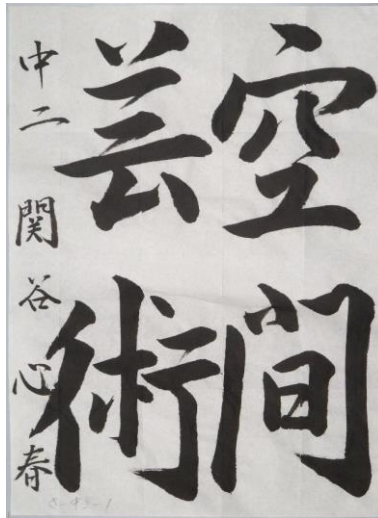 空間
芸術
中二 関谷心春